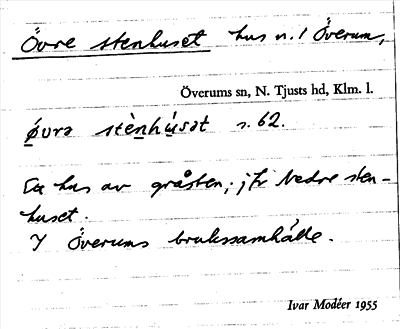 Övre stenhuset hus n. i Överum,
Överums sn, N. Tjusts hd, Klm. l.
ǿvrə stènhú̀sət s. 62.
Ett hus av gråsten; jfr Nedre sten-
huset.
I Överums brukssamhälle.
Ivar Modéer 1955